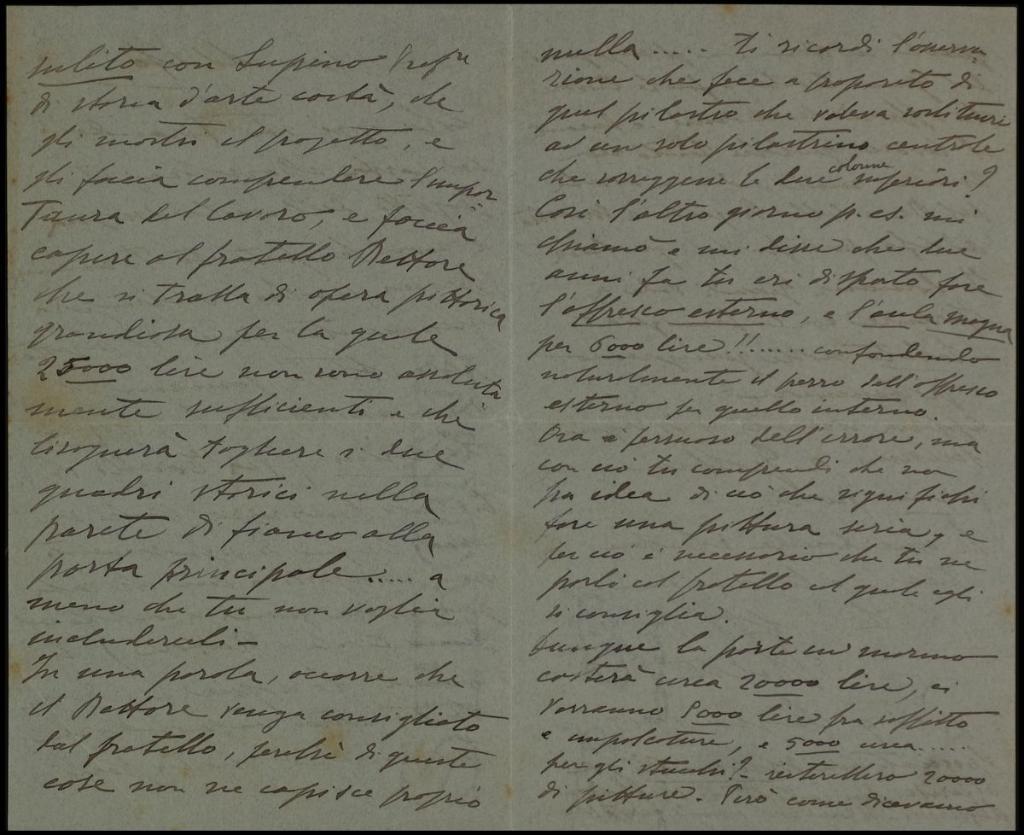 subito con Supino Profre
di storia d'arte costà, che
gli mostri il progetto, e
gli faccia comprendere l'impor
tanza del lavoro, e faccia
capire al fratello Rettore
che si tratta di opera pittorica
grandiosa per la quale
25000 lire non sono assoluta
mente sufficienti e che
bisognerà togliere i due
quadri storici nella
parete di fianco alla
porta principale..... a
meno che tu non voglia
includerceli –
In una parola, occorre che
il Rettore venga consigliato
dal fratello, perchè di queste
cose non ne capisce proprio
nulla ..... ti ricordi l'osserva
zione che fece a proposito di
quel pilastro che voleva sostituire
ad un solo pilastrino centrale
che sorreggene le due colonne inferiori?
Così l'altro giorno p. es. mi
chiamò e mi disse che due
anni fa tu eri disposto fare
l'affresco esterno, e l'aula magna
per 6000 lire!!...... confondendo
naturalmente il prezzo dell'affresco
esterno per quello interno.
Ora è persuaso dell'errore, ma
con ciò tu comprendi che non
ha idea di ciò che significhi
fare una pittura seria, e
per ciò è necessario che tu ne
parli col fratello al quale egli
si consiglia.
Dunque la porte in marmo
costerà circa 20000 lire, ci
vorranno 5000 lire fra soffitto
e impalcature, e 5000 circa.....
per gli stucchi? – resterebbero 20000
di pitture. Però come dicevamo